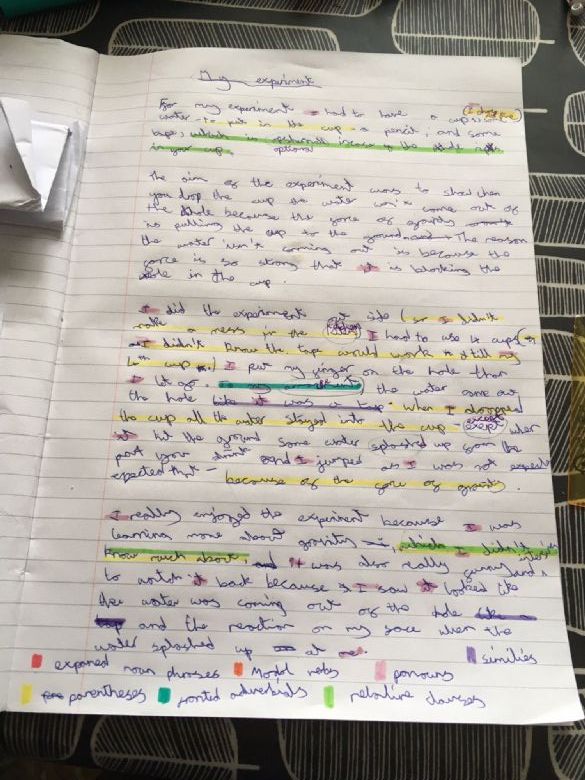 My experiment
For my experiment I had to have a cup, some
water - to put in the cup - a pencil, and some
tape, which is optional incase the hole
in your cup. optional
The aim of the experiment was to show when
you drop the cup the water won't come out of
the hole because the force of gravity
is pulling the cup to the ground. The reason
the water isn't coming out is because the
force is so strong that it is blocking the
hole in the cup.
I did the experiment out side (so I didn't
make a mess in the kitchen) I had to use 4 cups (
as I didn't know the tape would work still my
4th cup.) I put my finger on the hole than
I let go. the water came out
the hole like it was a tap. When I dropped
the cup all the water stayed into the cup - except
exept when
it hit the ground some water splashed up from the
part your drink and I jumped as I was not
expected that - because of the force of gravity.
I really enjoyed the experiment because I was
learning more about gravity, which I didn't
know much about, and it was also really funny and
to watch it back because I saw it looked like
the water was coming out of the hole like a
tap and the reaction on my face when the
water splashed up at me.
expaned noun phrases Modal verbs pronouns similies
parentheses fronted adverbials relative clauses